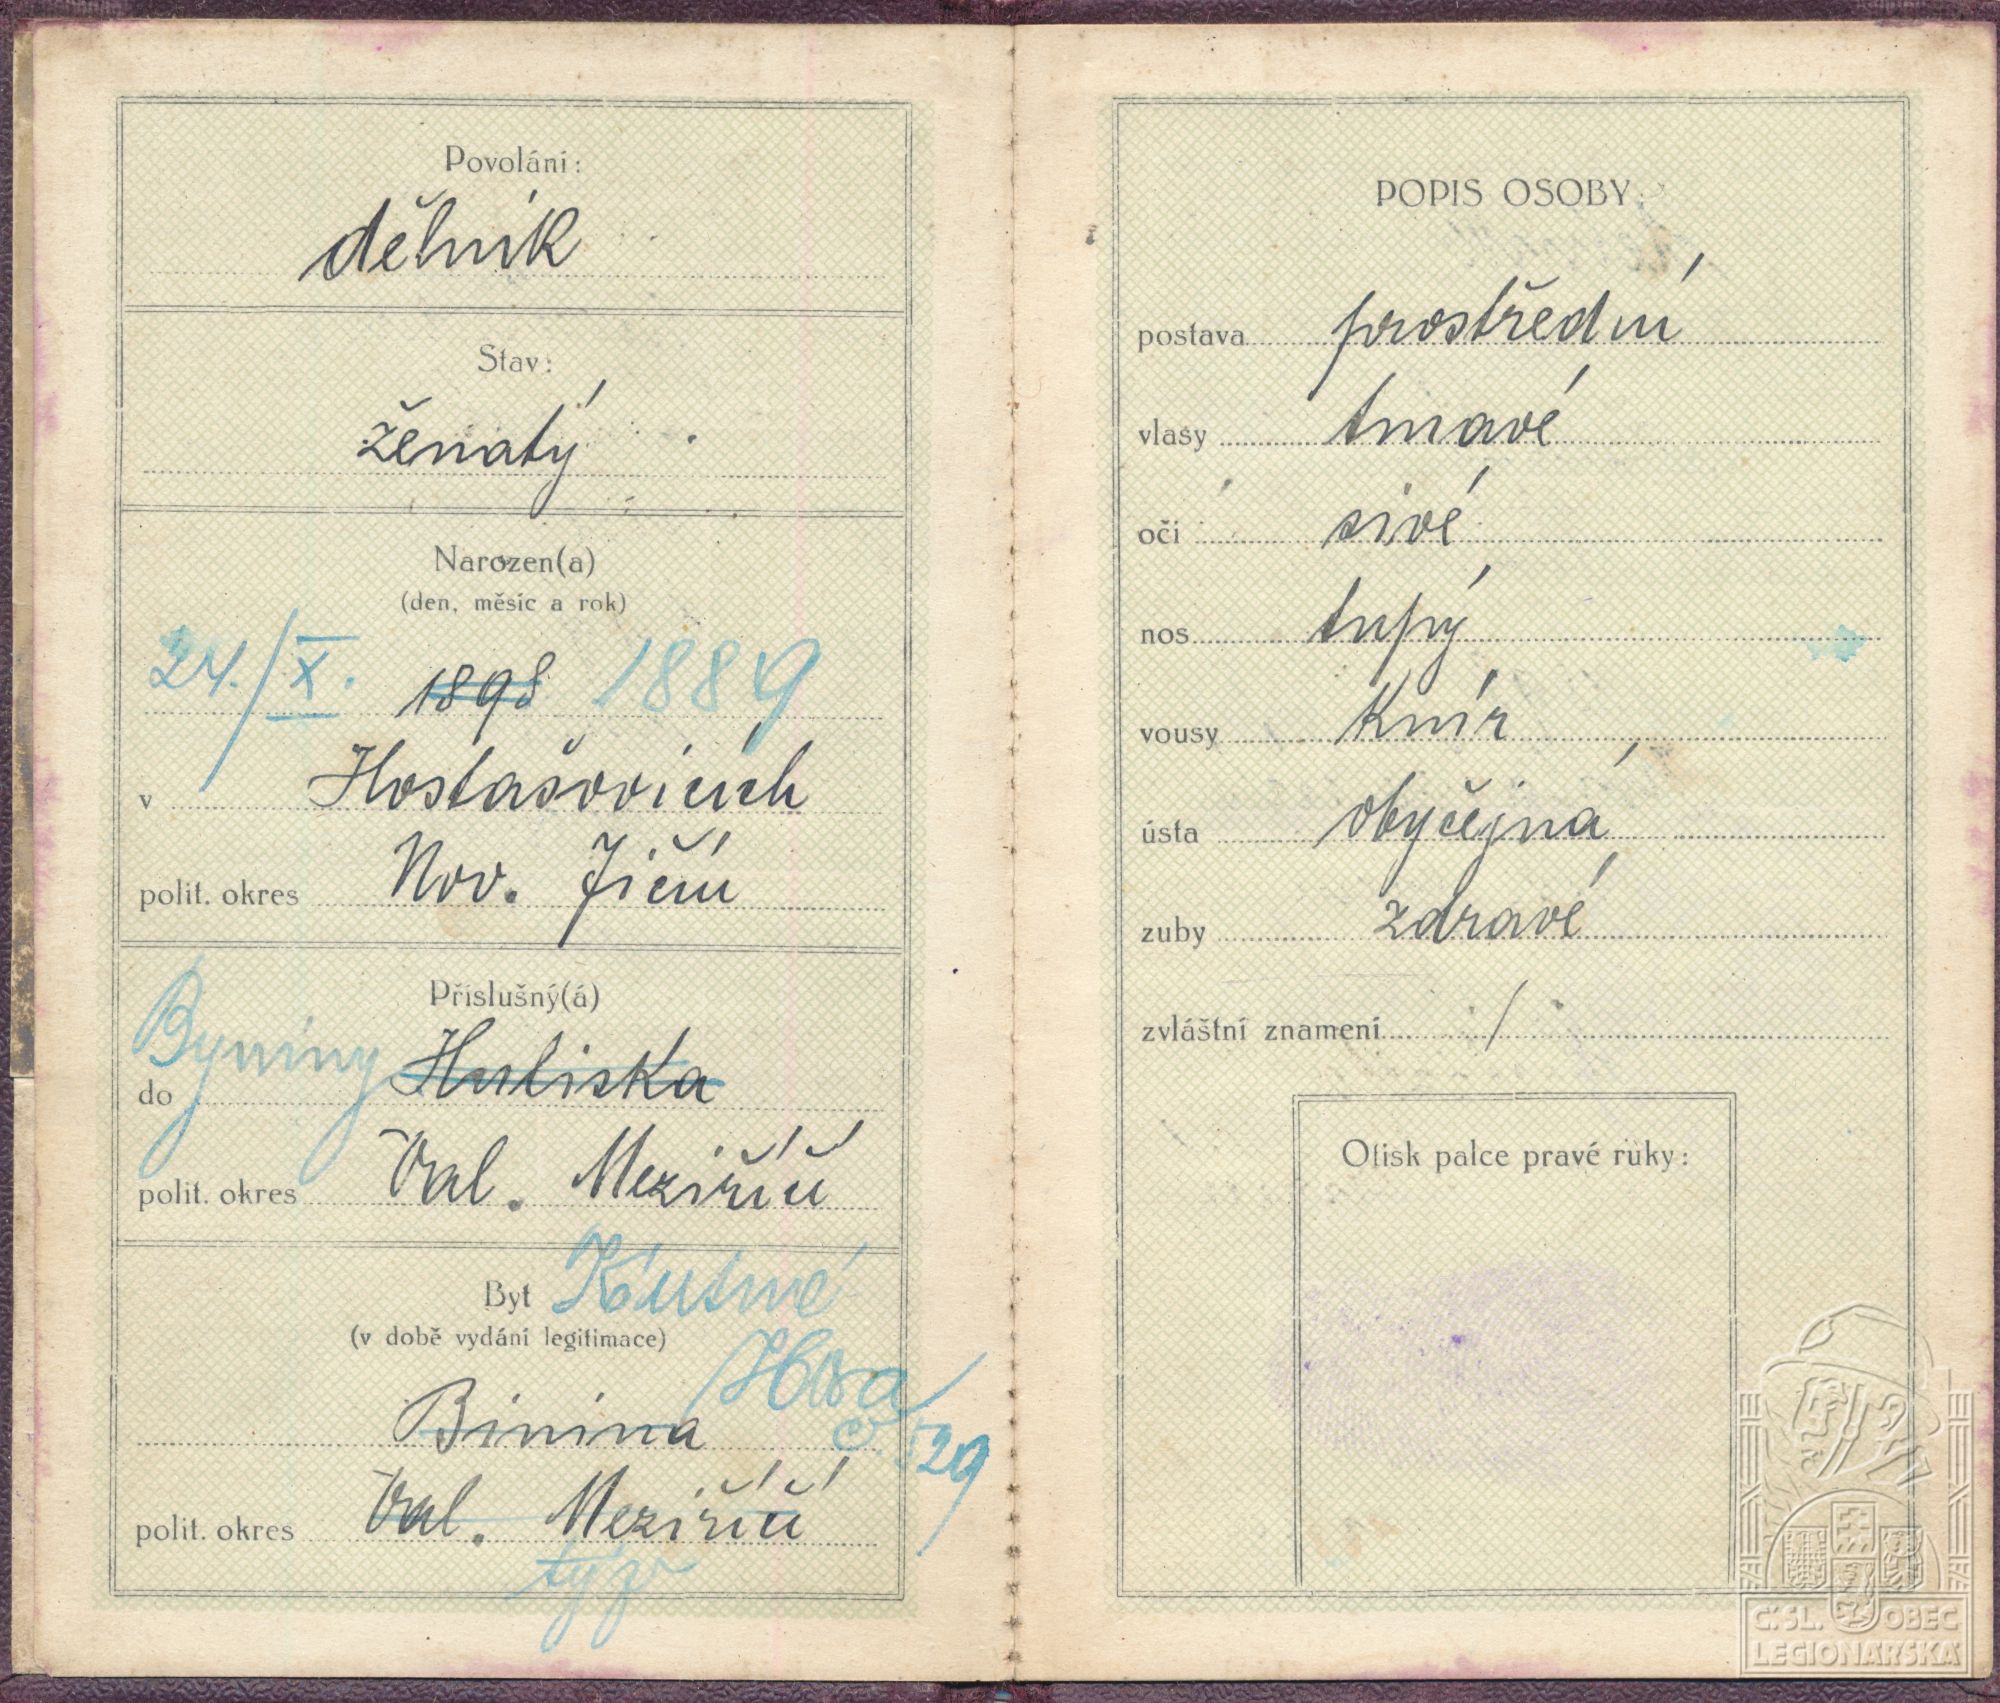 Povolání:
dělník
Stav:
ženatý
Narozen(a)
(den, měsíc a rok)
24./X. 1898 1889
v Hostašovicích
polit. okres Nov. Jičín
Příslušný(á)
Byniny
do Huliska
polit. okres Val. Meziříčí
Byt Kutné
(v době vydání legitimace)
Hora
Binina 529
polit. okres Val. Meziříčí
týž
POPIS OSOBY:
postava prostřední
vlasy tmavé
oči sivé
nos tupý
vousy knír
ústa obyčejná
zuby zdravé
zvláštní znamení /
Otisk palce pravé ruky:
Č.SL. OBEC
LEGIONÁŘSKÁ